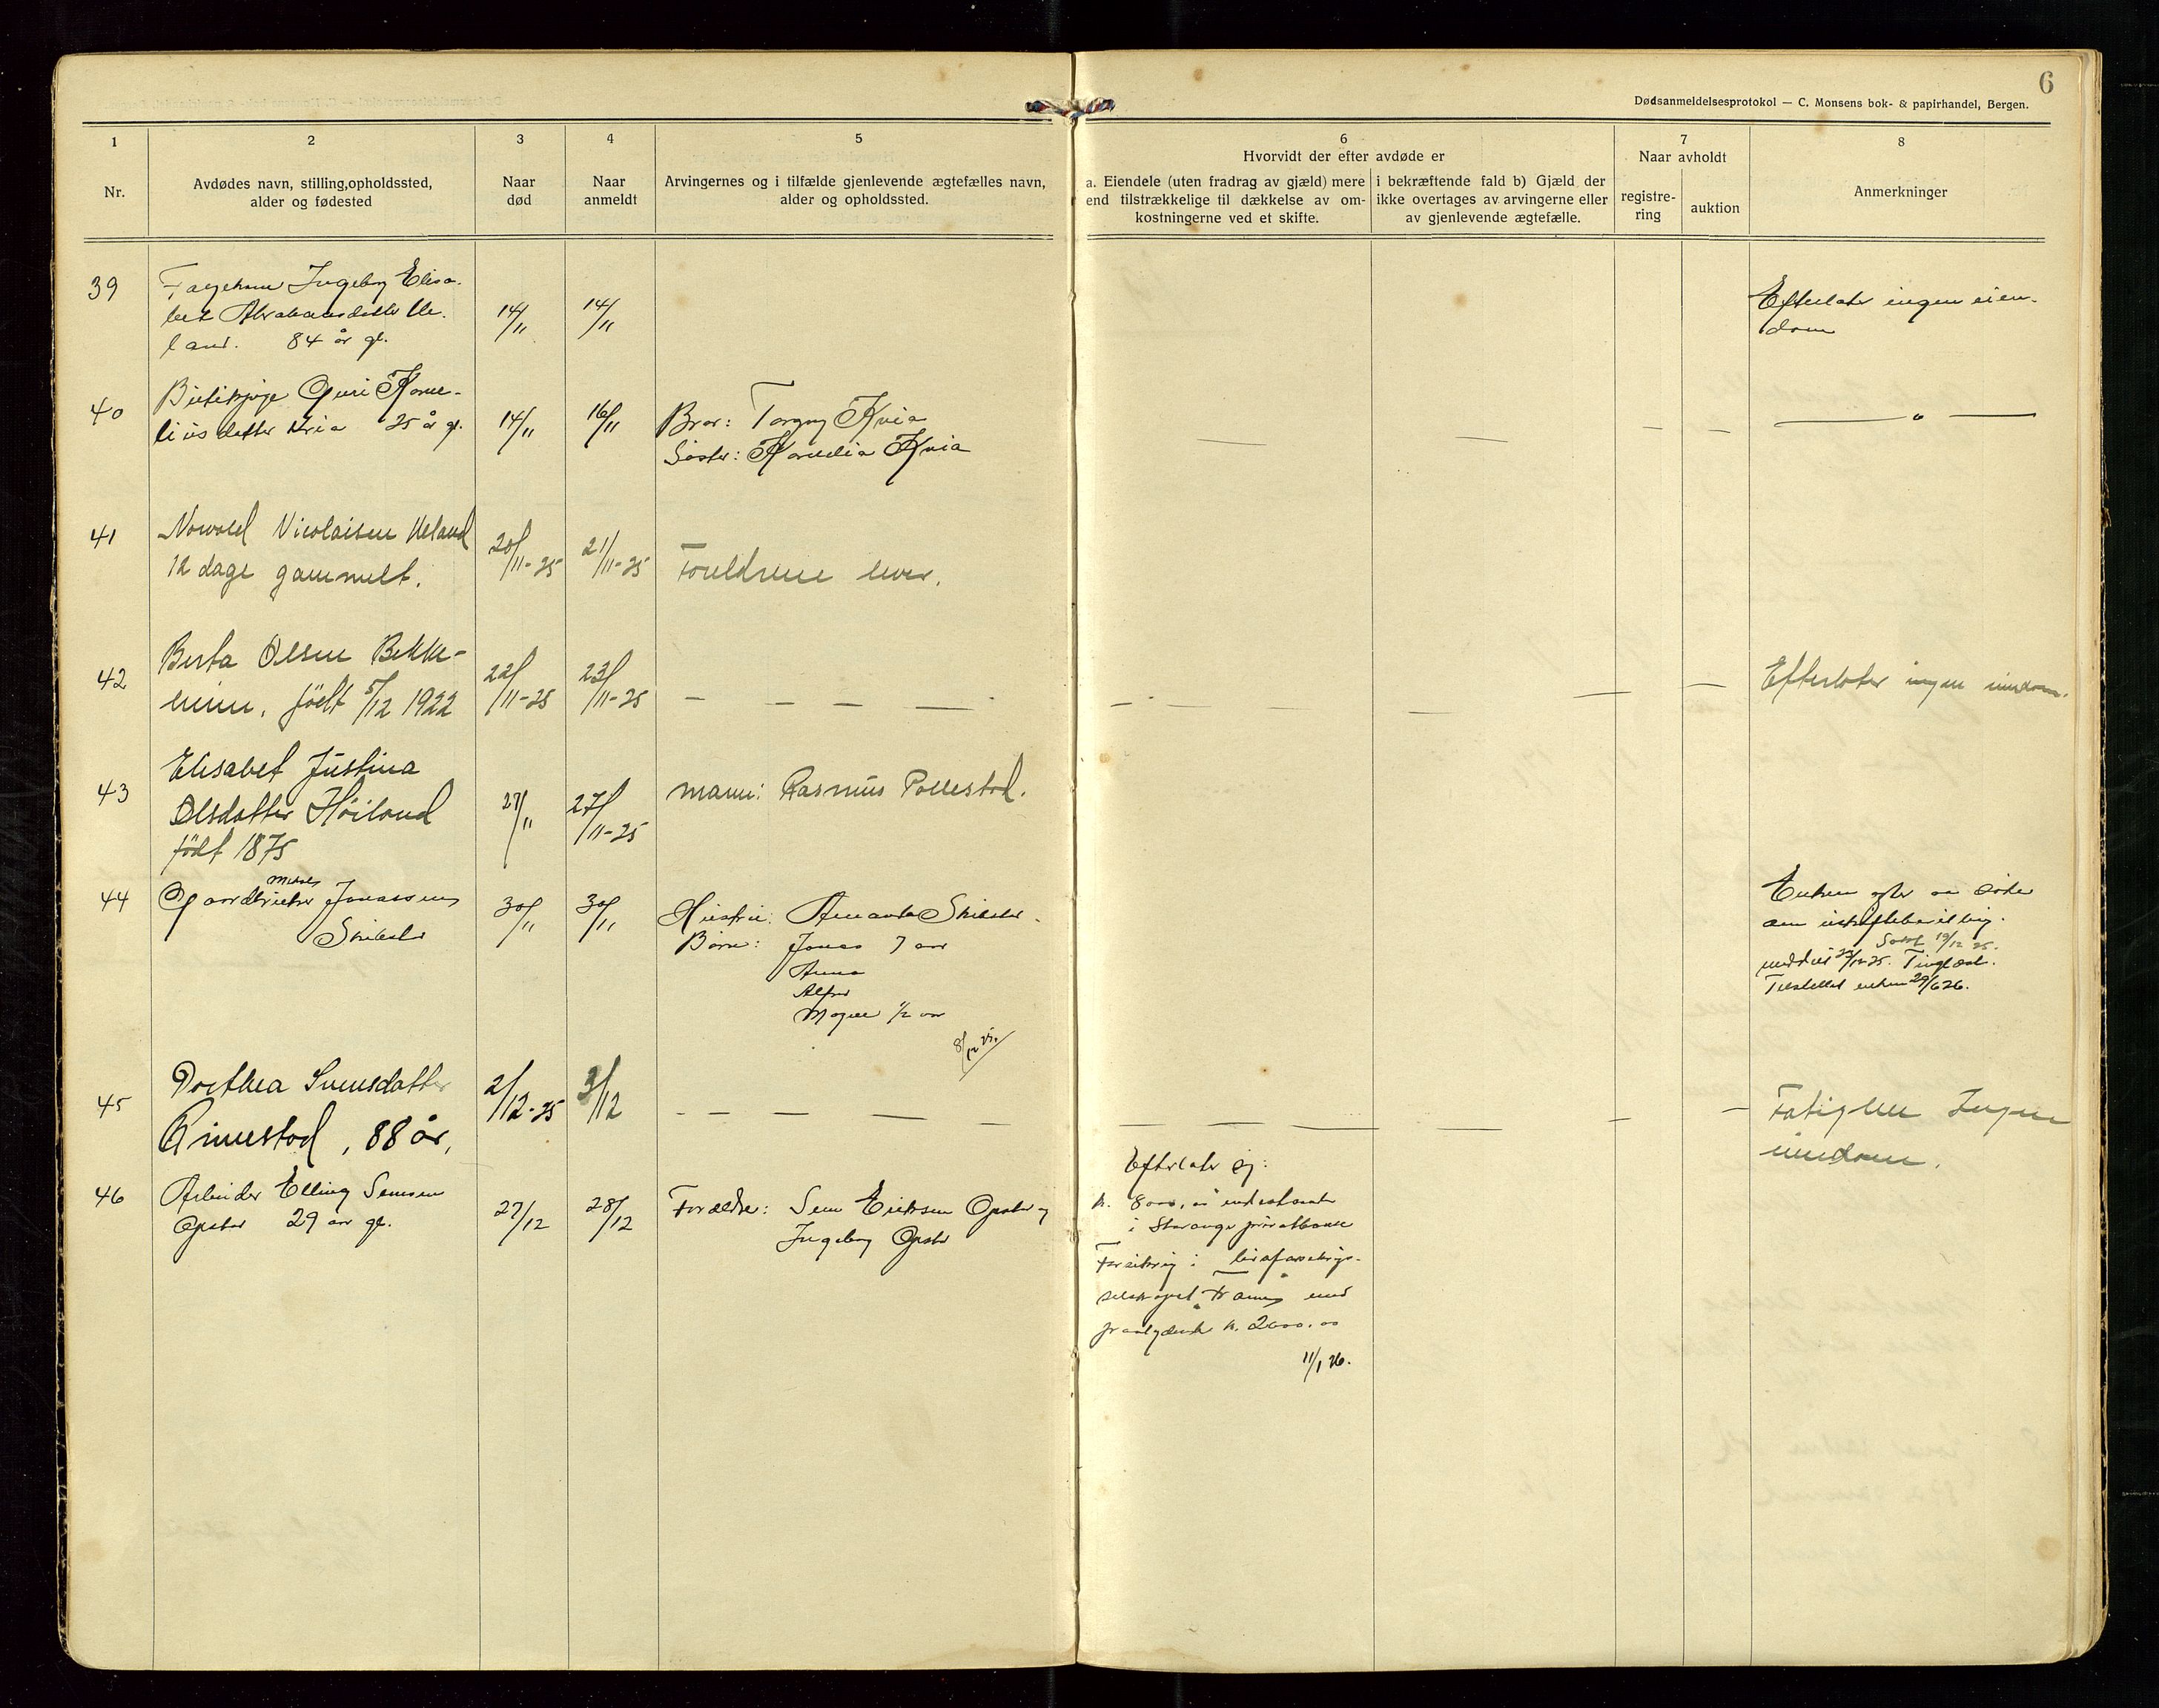 6
Dødsanmeldelsesprotokol — C. Monsens bok- & papirhandel, Bergen.
1
Nr.
2
Avdødes navn, stilling,opholdssted,
alder og fødested
3
Naar
død
4
Naar
anmeldt
5
Arvingernes og i tilfælde gjenlevende ægtefælles navn,
alder og opholdssted.
6
Hvorvidt der efter avdøde er
a. Eiendele (uten fradrag av gjæld) mere
end tilstrækkelige til dækkelse av om-
kostningerne ved et skifte.
i bekræftende fald b) Gjæld der
ikke overtages av arvingerne eller
av gjenlevende ægtefælle.
7
Naar avholdt
registre-
ring
auktion
8
Anmerkninger
39
Ingeborg Elisa-
bet Abrahamsdatter Ue-
land. 84 år gl.
14/11
14/11
Efterlater ingen eien-
dom
40
Guri Korne-
liusdatter Kvia 25 år gl.
14/11
16/11
Bror: Torgny Kvia
Søster: Kornelia Kvia
— " —
41
Nicolaisen Ueland
12 dage gammelt.
20/11-25
21/11-25
Foreldrene lever.
42
Berta Olsen Bekke-
heim, født 5/12 1922
22/11-25
23/11-25
— — — —
Efterlater ingen eiendom.
43
Elisabet Justina
Olsdatter Høiland
født 1875
27/11
27/11-25
mann: Rasmus Pollestad.
44
Gaardbruker Jonassen
30/11
30/11
Hustru: Amanda
Børn: Jonas 7 aar
Anna
Alfred
Magne 1/2 aar
8/12 25.
Enken agter aa søke
om uskiftebevilling.
Søkt 19/12 25.
meddelt 23/12-25. Tinglæst.
Tilstillet enken 29/6 26.
45
Dorthea Svensdatter
Grimestad, 88 år,
2/12-25
3/12
— — — —
Fatiglem Ingen
eiendom.
46
Arbeider Elling Semsen
Opstad 29 aar gl.
27/12
28/12
Forældre: Sem Eriksen Opstad og
Ingeborg Opstad
Efterlater sig:
kr. 8000,00 indestaaende
i Stavanger privatbank
Forsikring i livsforsikrings-
selskapet "Fram" med
paalydende kr. 2000.00
11/1 26.